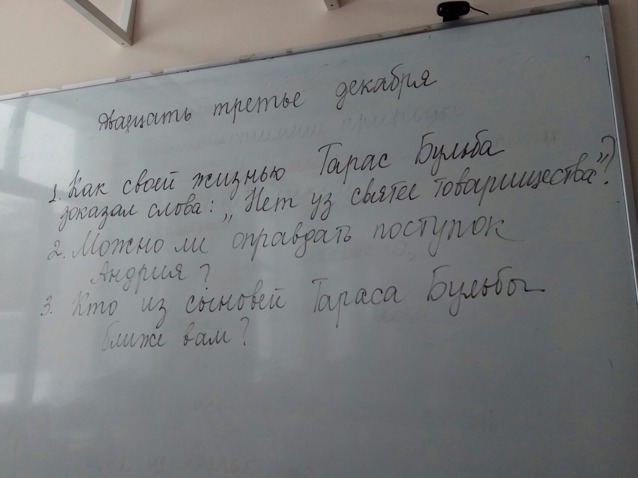 Двадцать третье декабря
1. Как своей жизнью Тарас Бульба
доказал слова: „Нет уз святее товарищества"?
2. Можно ли оправдать поступок
Андрия?
3. Кто из сыновей Тараса Бульбы
ближе вам?